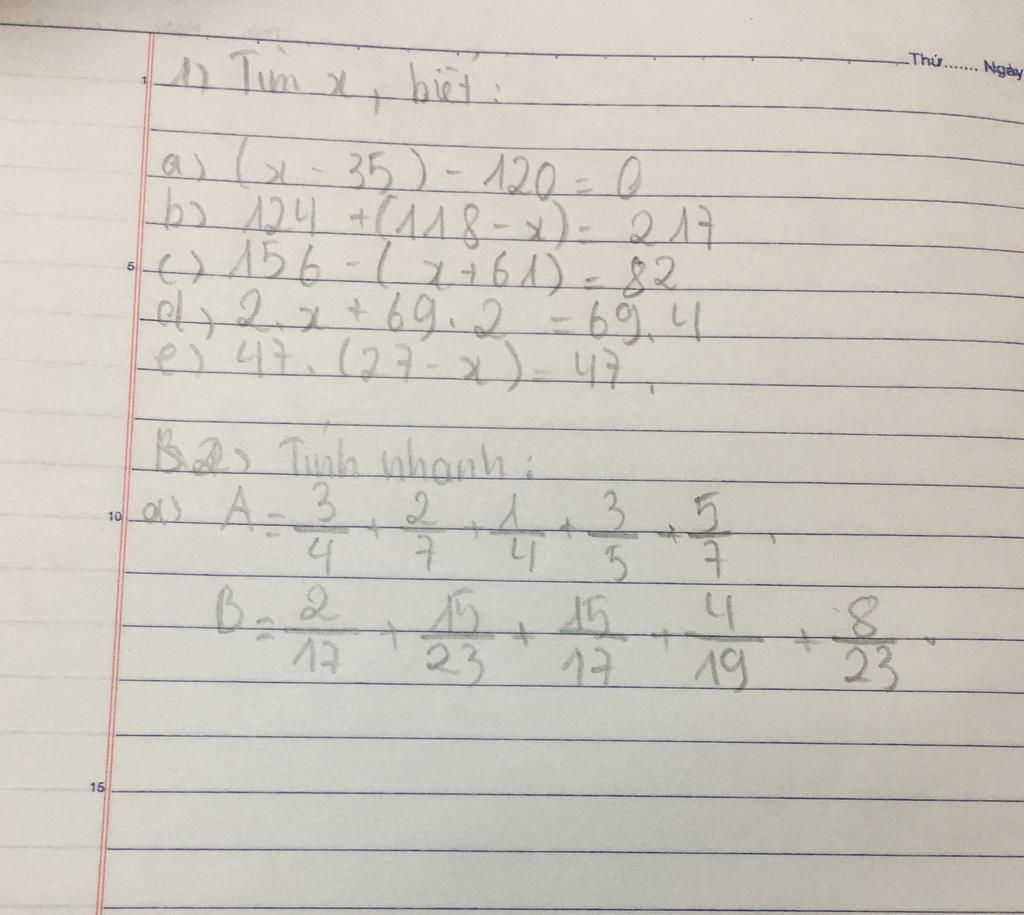 Thứ....... Ngày
1
1) Tìm x, biết:
a) (x - 35) - 120 = 0
b) 124 + (118 - x) = 217
5
c) 156 - (x + 61) = 82
d) 2.x + 69.2 = 69.4
e) 47.(27 - x) = 47.
B2) Tính nhanh:
10
a) A = 3/4 + 2/7 + 1/4 + 3/5 + 5/7.
B = 2/17 + 15/23 + 15/17 + 4/19 + 8/23.
15